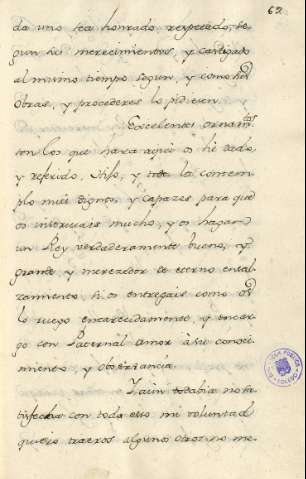 62
da uno sea honrado, respetado, se-
gun sus merecimientos, y castigado
al mismo tiempo segun, y como sus
Obras, y procederes lo pidiesen.
Excelentes ornam.tos
son los que hasta aqui os hé dado
y referido, Hijo, y los contem-
plo mui dignos, y capazes para que
os instruiais mucho, y os hagan
un Rey verdaderamente bueno, y
grande, y merezedor de eterno ensal-
zamiento, si os entregais como os
lo ruego encarecidamente, y encar-
go con Paternál Amor á su conoci-
miento, y observancia.
I aún todabia no sa-
tisfecha con todo esto mi voluntad
quiero traeros algunos otros no me-